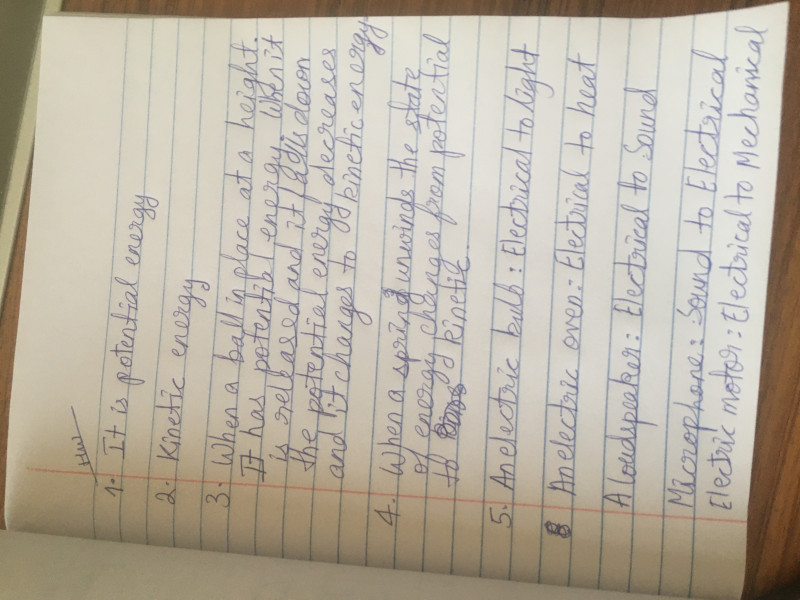 HW
1. It is potential energy
2. Kinetic energy
3. When a ball is place at a height.
It has potential energy. When it
is released and it falls down
the potential energy decreases
and it changes to kinetic energy
4. When a spring unwinds the state
of energy changes from potential
to kinetic.
5. An electric bulb : Electrical to light
An electric oven : Electrical to heat
A loudspeaker : Electrical to Sound
Microphone : Sound to Electrical
Electric motor : Electrical to Mechanical